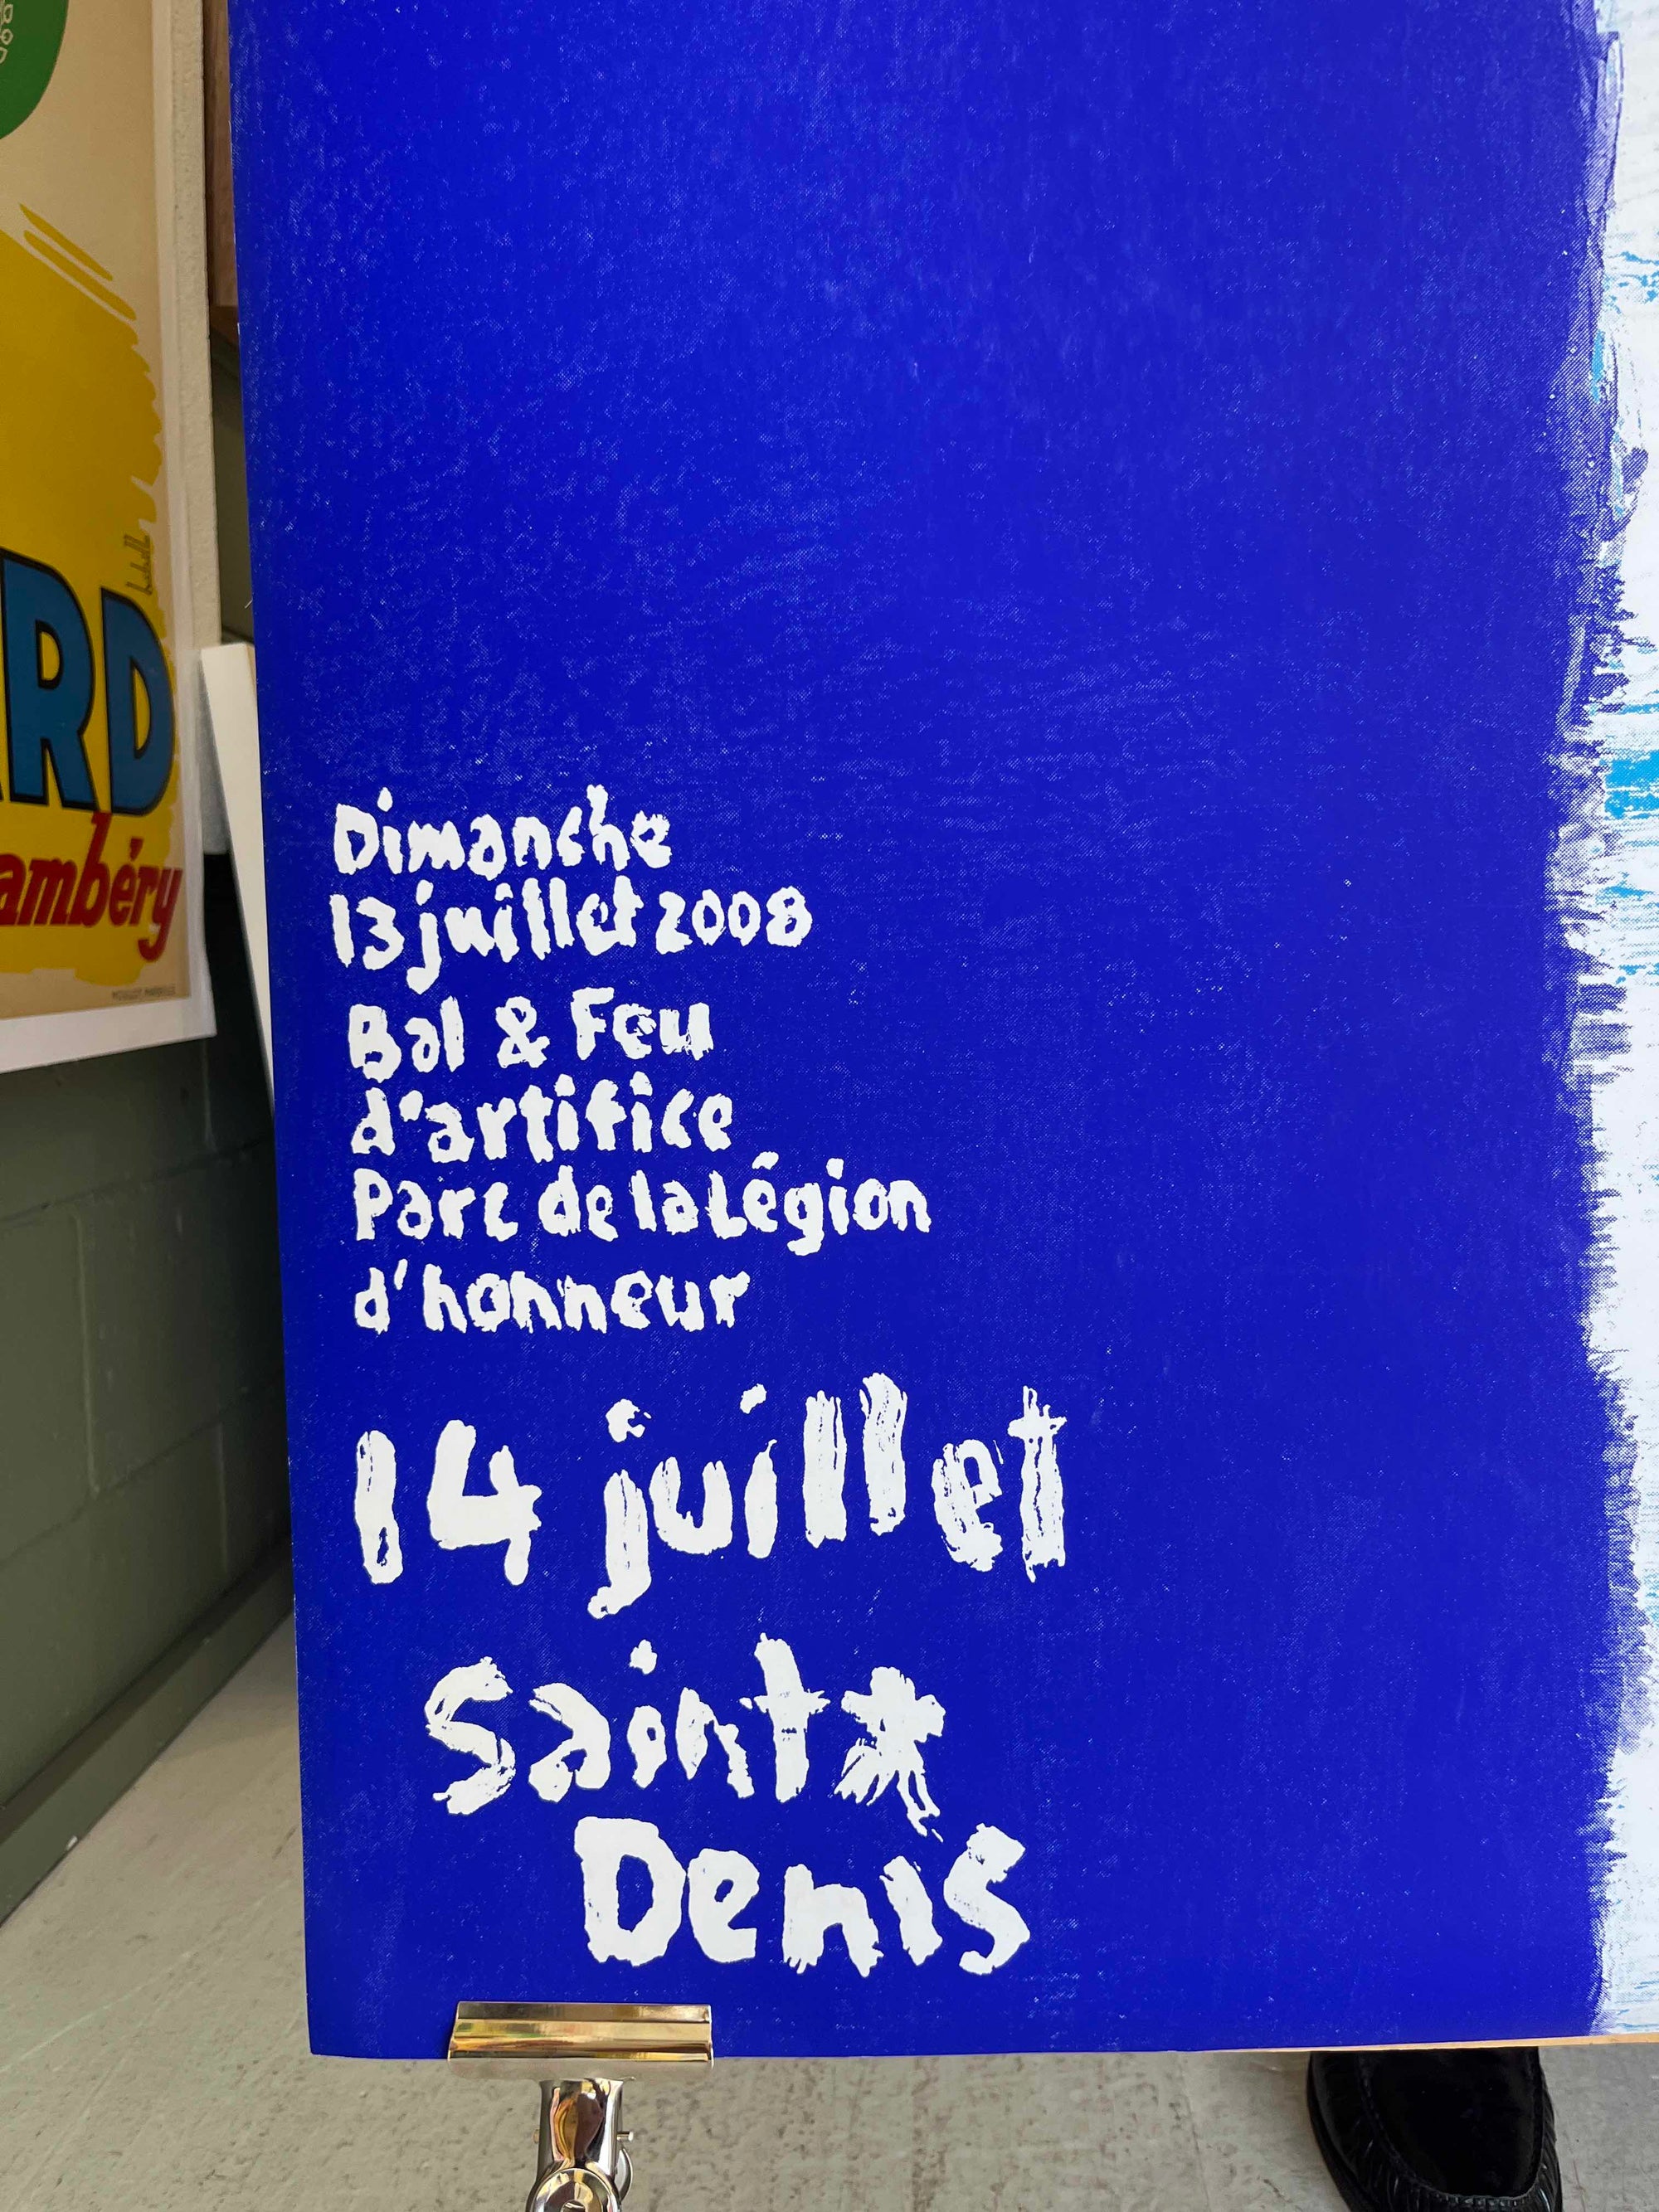 Dimanche
13 juillet 2008
Bal & Feu
d'artifice
Parc de la Légion
d'honneur
14 juillet
Saint*
Denis
RD
ambéry